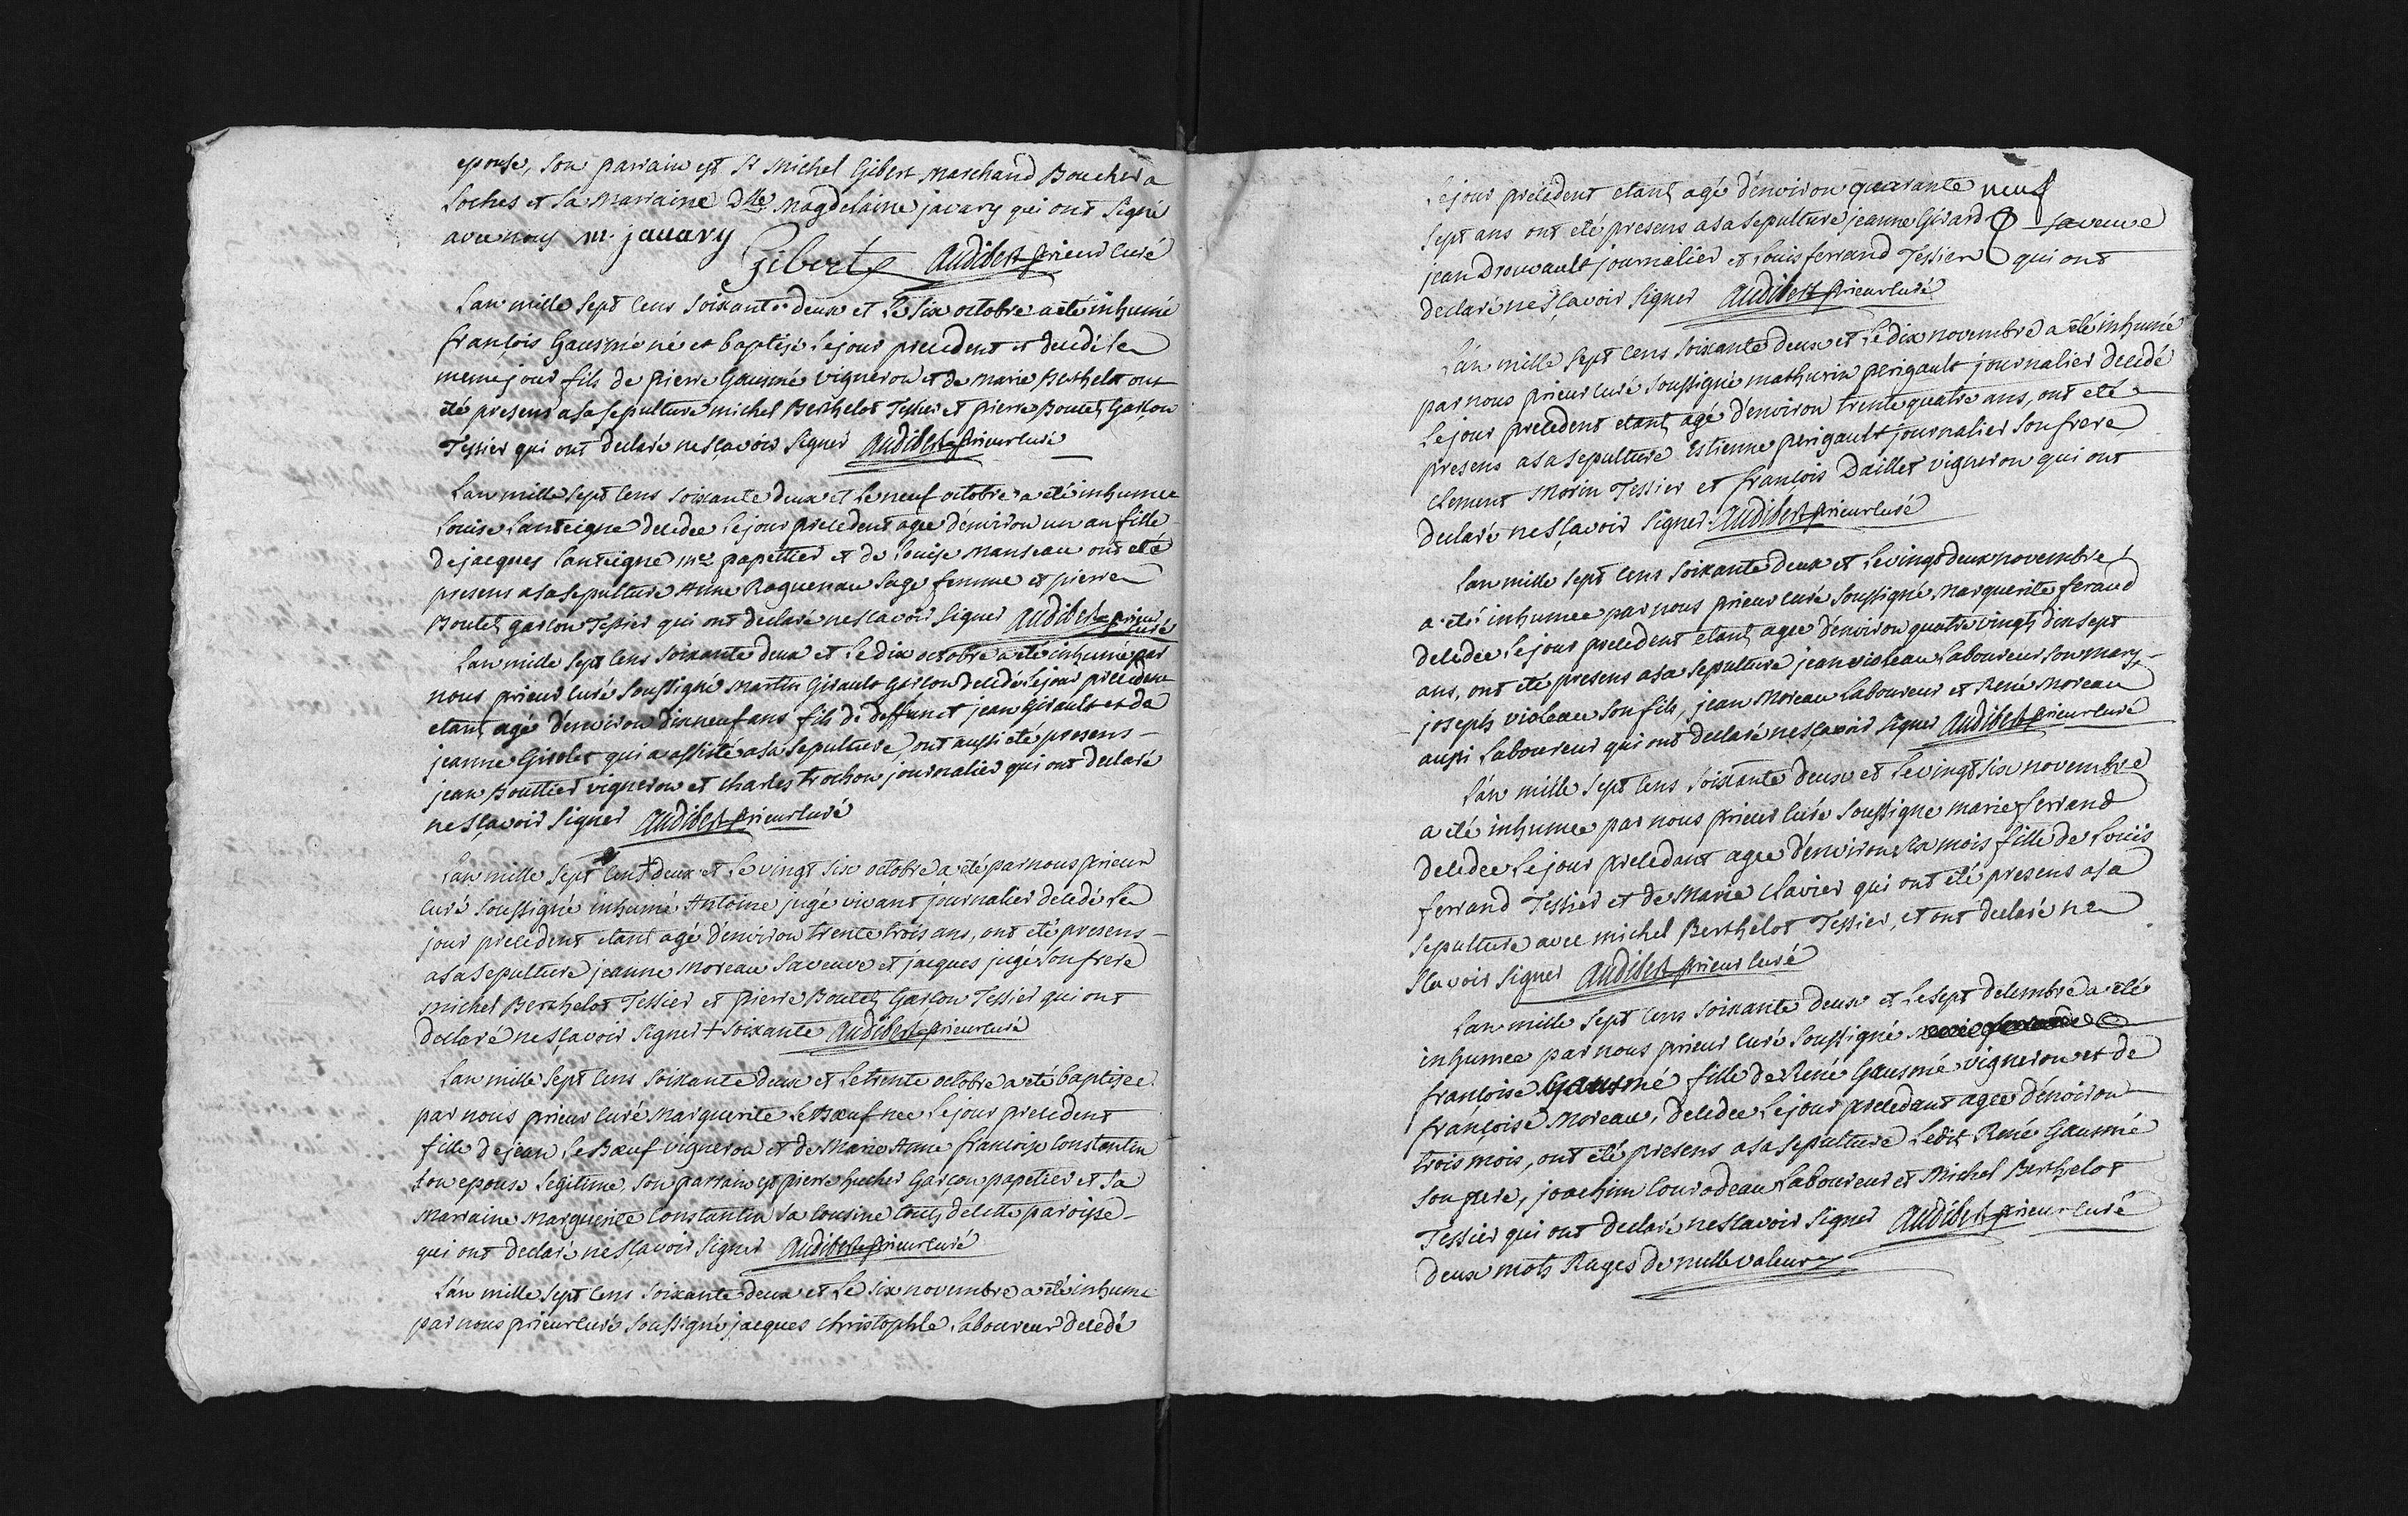 epouse, son parrain est Sr Michel Gibert Marchand Boucher a
Loches et sa Marraine Dlle Magdelaine javary qui ont signé
avec nous m. javary
Gibert Audibert prieur curé
L'an mille sept cens soixante deux et le six octobre a été inhumé
françois Gausmé né et baptisé le jour precedent et decedé le
meme jour fils de pierre Gausmé vigneron et de marie Berthelot ont
été presens a sa sepulture michel Berthelot Tessier et pierre Boutet Garçon
Tessier qui ont declaré ne sçavoir signer Audibert prieur curé
L'an mille sept cens soixante deux et le neuf octobre a été inhumee
Louise Lanteigne decedee le jour precedent agee d'environ un an fille
de jacques Lanteigne me papettier et de Louise Manseau ont été
presens a sa sepulture Anne Raguenau sage femme et pierre
Boutet garcon Tessier qui ont declaré ne scavoir signer Audibert prieur
curé
L'an mille sept cens soixante deux et le dix octobre a été inhumé par
nous prieur curé soussigné Martin Girault Garcon decedé le jour precedent
etant agé d'environ dix neuf ans fils de deffunct jean Girault et de
jeanne Girolet qui a assisté a sa sepulture, ont aussi été presens
jean Bouttier vigneron et charles trochon journalier qui ont declaré
ne sçavoir signer Audibert prieur curé
L'an mille sept cent + deux et le vingt six octobre a été par nous prieur
curé soussigné inhumé Antoine jugé vivant journalier decedé le
jour precedent etant agé d'environ trente trois ans, ont été presens
a sa sepulture jeanne Moreau sa veuve et jacques jugé son frere
michel Berthelot Tessier et pierre Boutet Garçon Tessier qui ont
declaré ne sçavoir signer + soixante Audibert prieur curé
L'an mille sept cens soixante deux et le trente octobre a été baptisee
par nous prieur curé Marguerite LeBœuf nee le jour precedent
fille de jean LeBœuf vigneron et de Marie Anne françoise Constantin
son epouse legitime, son parrain est pierre hucher Garçon papetier et sa
Marraine Marguerite Constantin sa cousine touts de cette paroisse
qui ont declaré ne sçavoir signer Audibert prieur curé
L'an mille sept cens soixante deux et le six novembre a été inhumé
par nous prieur curé soussigné jacques christophle Laboureur decedé
le jour precedent etant agé d'environ quarante neuf
sept ans ont été presens a sa sepulture jeanne Girard sa veuve
jean Drouault journalier et Louis ferrand Tessier qui ont
declaré ne sçavoir signer Audibert prieur curé
L'an mille sept cens soixante deux et le dix novembre a été inhumé
par nous prieur curé soussigné mathurin perigault journalier decedé
le jour precedent etant agé d'environ trente quatre ans, ont été
presens a sa sepulture Estienne perigault journalier son frere
clement Morin Tessier et françois Daillet vigneron qui ont
declaré ne sçavoir signer. Audibert prieur curé
L'an mille sept cens soixante deux et le vingt deux novembre
a été inhumee par nous prieur curé soussigné Marguerite feraud
decedee le jour precedent etant agee d'environ quatre vingts dix sept
ans, ont été presens a sa sepulture jean violeau Laboureur son mary,
joseph violeau son fils, jean Moreau Laboureur et René Moreau
aussi Laboureur qui ont declaré ne sçavoir signer Audibert prieur curé
L'an mille sept cens soixante deux et le vingt six novembre
a été inhumee par nous prieur curé soussigné marie ferrand
decedee le jour precedant agee d'environ six mois fille de Louis
ferrand Tessier et de Marie Clavier qui ont été presens a sa
sepulture avec michel Berthelot Tessier, et ont declaré ne
scavoir signer Audibert prieur curé
L'an mille sept cens soixante deux et le sept decembre a été
inhumee par nous prieur curé soussigné
françoise Gausmé fille de René Gausmé vigneron et de
françoise Moreau, decedee le jour precedant agee d'environ
trois mois, ont été presens a sa sepulture Ledit René Gausmé
son pere, joachim Courodeau Laboureur et Michel Berthelot
Tessier qui ont declaré ne scavoir signer Audibert prieur curé
deux mots Rayes de nulle valeur